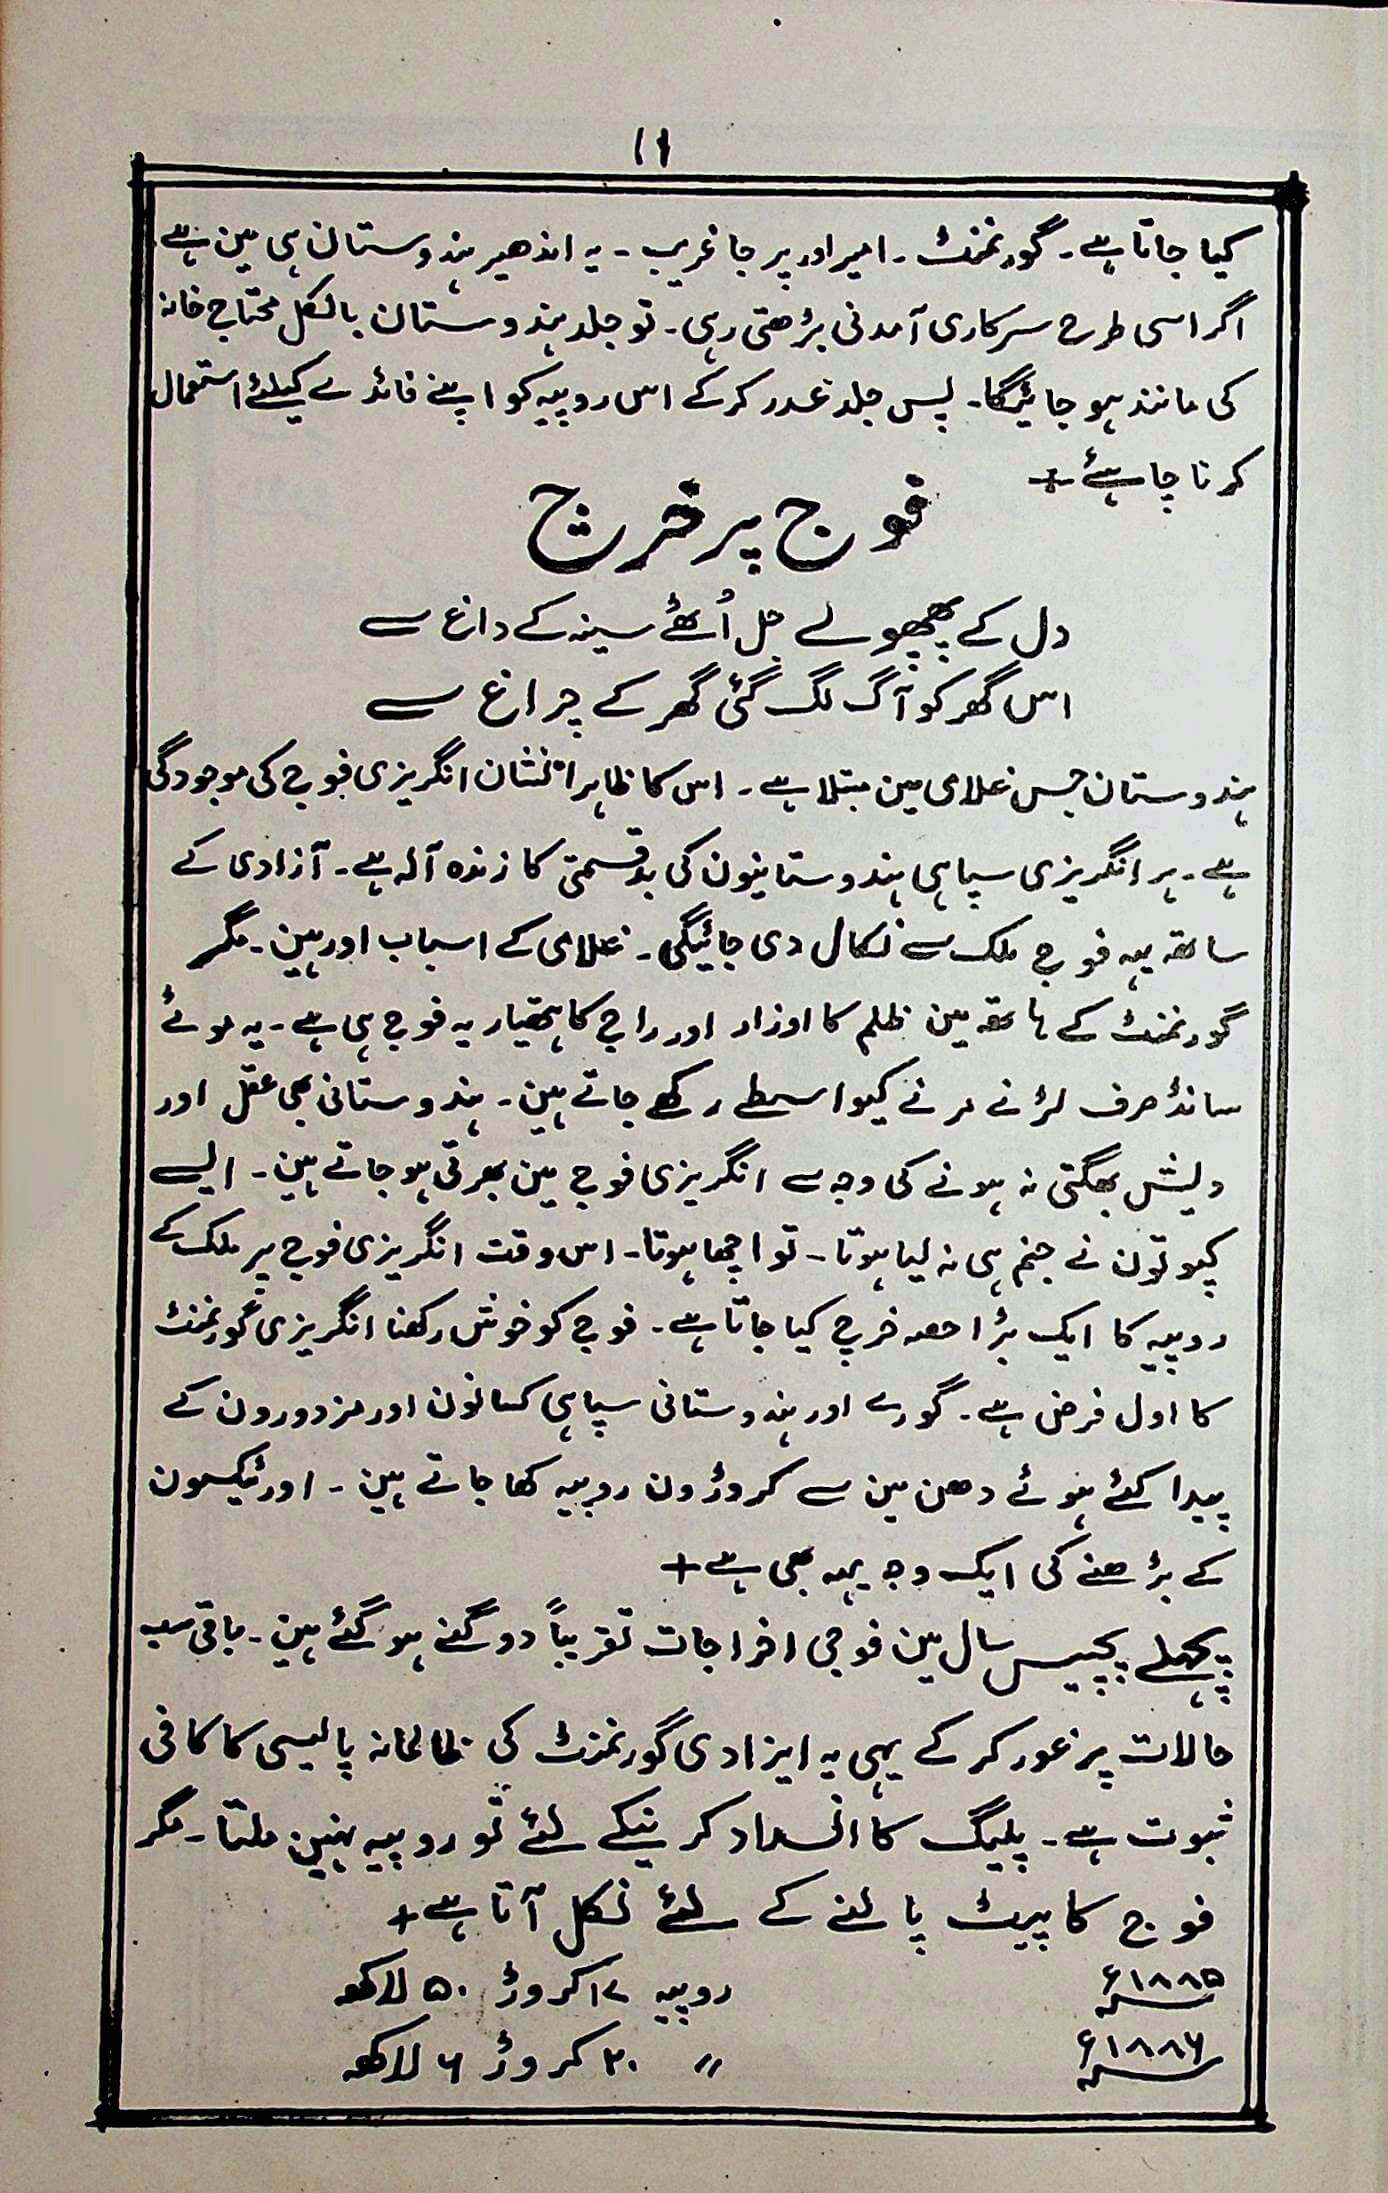 ۱۱
کیا جاتا ہے۔ گورنمنٹ۔ امیر اور پرجا غریب۔ یہ اندھیر ہندوستان ہی مین ہے
اگر اسی طرح سرکاری آمدنی بڑھتی رہی۔ تو جلد ہندوستان بالکل محتاج خانہ
کی مانند ہو جائیگا۔ پس جلد غدر کرکے اس روپیہ کو اپنے فائدے کیلئے استعمال
کرنا چاہئے +
فوج پر خرچ
دل کے پھپھولے جل اُٹھے سینہ کے داغ سے
اس گھر کو آگ لگ گئی گھر کے چراغ سے
ہندوستان جس غلامی مین مبتلا ہے۔ اس کا ظاہرا نشان انگریزی فوج کی موجودگی
ہے۔ ہر انگریزی سپاہی ہندوستانیون کی بدقسمتی کا زندہ آلہ ہے۔ آزادی کے
ساتھ یہہ فوج ملک سے نکال دی جائیگی۔ غلامی کے اسباب اور ہین۔ مگر
گورنمنٹ کے ہاتھ مین ظلم کا اوزار اور راج کا ہتھیار یہ فوج ہی ہے۔ یہ موٹے
سانڈ صرف لڑنے مرنے کیواسطے رکھے جاتے ہین۔ ہندوستانی بھی عقل اور
دیش بھگتی نہ ہونے کی وجہ سے انگریزی فوج مین بھرتی ہو جاتے ہین۔ ایسے
کپوتون نے جنم ہی نہ لیا ہوتا۔ تو اچھا ہوتا۔ اس وقت انگریزی فوج پر ملک کے
روپیہ کا ایک بڑا حصہ خرچ کیا جاتا ہے۔ فوج کو خوش رکھنا انگریزی گورنمنٹ
کا اول فرض ہے۔ گورے اور ہندوستانی سپاہی کسانون اور مزدورون کے
پیدا کئے ہوئے دھن مین سے کروڑون روپیہ کھا جاتے ہین۔ اور ٹیکسون
کے بڑھنے کی ایک وجہ یہہ بھی ہے +
پچھلے پچیس سال مین فوجی اخراجات تقریباً دوگنے ہو گئے ہین۔ باقی سب
حالات پر غور کرکے یہی یہ ایزادی گورنمنٹ کی ظالمانہ پالیسی کا کافی
ثبوت ہے۔ پلیگ کا انسداد کرنیکے لئے تو روپیہ نہین ملتا۔ مگر
فوج کا پیٹ پالنے کے لئے نکل آتا ہے +
سنہ ۱۸۸۵ء روپیہ ۱۷ کروڑ ۵۰ لاکھ
سنہ ۱۸۸۶ء 〃 ۲۰ کروڑ ۶ لاکھ